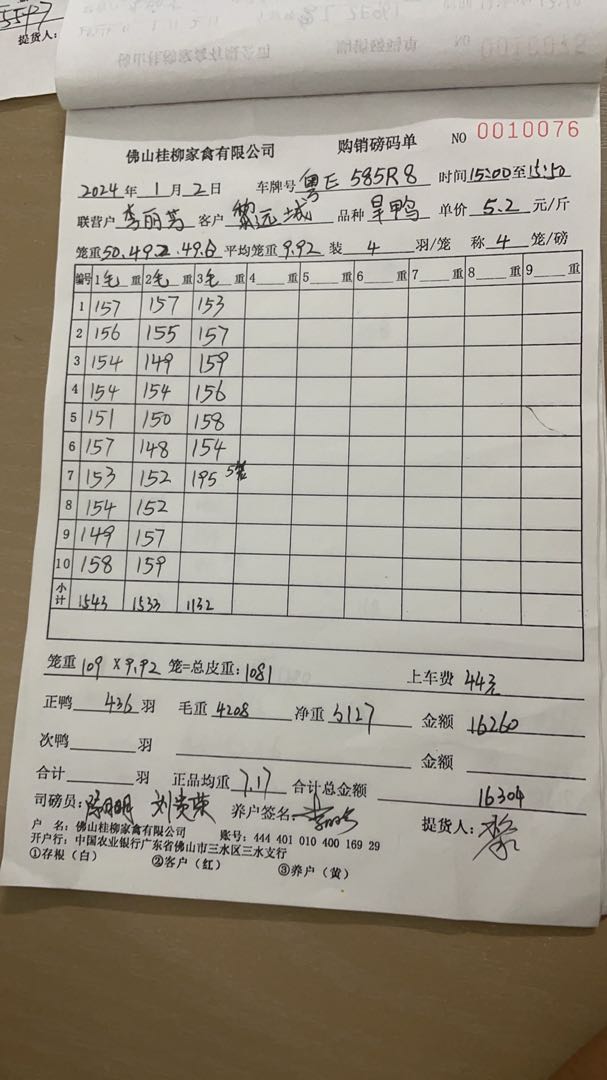 提货人：
0010072
佛山桂柳家禽有限公司 购销磅码单 NO 0010076
2024年1月2日 车牌号 粤E 585R8 时间15:00至15:50
联营户 李丽芳 客户 黎远城 品种 旱鸭 单价 5.2 元/斤
笼重 50.49.2.49.6 平均笼重 9.92 装 4 羽/笼 称 4 笼/磅
编号 1毛重 2毛重 3毛重 4重 5重 6重 7重 8重 9重
1 157 157 153
2 156 155 157
3 154 149 159
4 154 154 156
5 151 150 158
6 157 148 154
7 153 152 195 5笼
8 154 152
9 149 157
10 158 159
小计 1543 1533 1132
笼重 109 x 9.92 笼=总皮重：1081 上车费 44元
正鸭 436 羽 毛重 4208 净重 3127 金额 16260
次鸭 羽 金额
合计 羽 正品均重 7.17 合计总金额 16304
司磅员： 刘贵荣 养户签名： 提货人：黎
户 名：佛山桂柳家禽有限公司 账号：444 401 010 400 169 29
开户行：中国农业银行广东省佛山市三水区三水支行
①存根（白） ②客户（红） ③养户（黄）